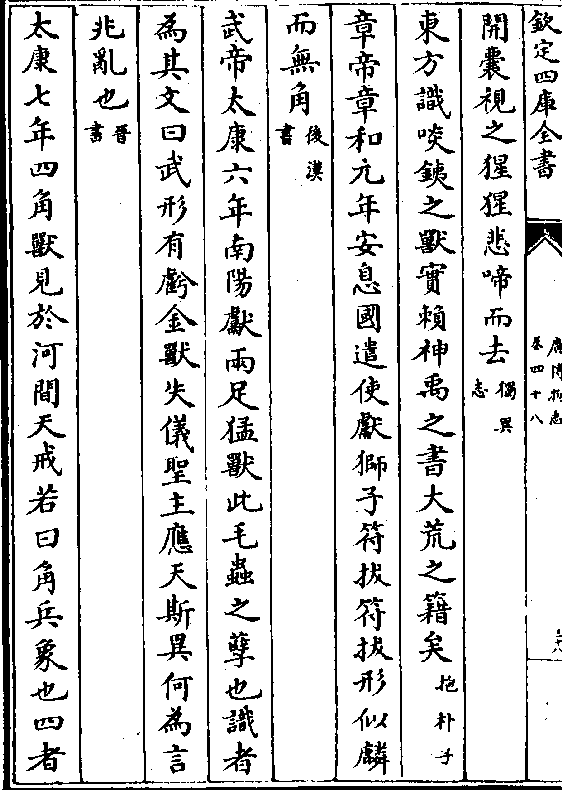 欽定四庫全書
廣博物志
卷四十八
三十八
開囊視之猩猩悲啼而去獨異志
東方識啖鐵之獸實賴神禹之書大荒之籍矣抱朴子
章帝章和元年安息國遣使獻獅子符拔符拔形似麟
而無角後漢書
武帝太康六年南陽獻兩足猛獸此毛蟲之孽也識者
為其文曰武形有虧金獸失儀聖主應天斯異何為言
兆亂也晉書
太康七年四角獸見於河間天戒若曰角兵象也四者